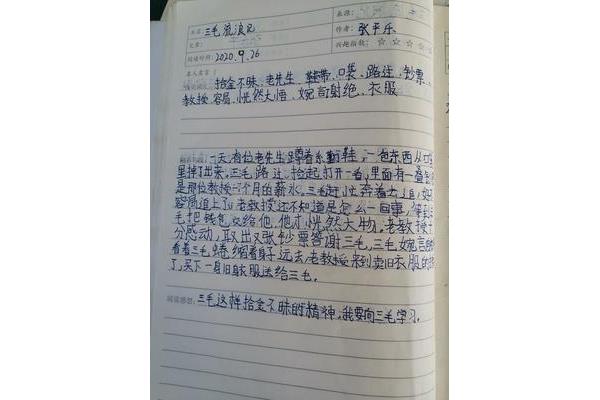 来源:
书名: 三毛流浪记
作者: 张乐平
文章:
兴趣指数: ☆ ☆ ☆ ☆
阅读时间: 2020.9.26
拾金不昧、老先生、鞋带、口袋、路过、钞票、
教授、容局、恍然大悟、婉言谢绝、衣服
一天,有位老先生蹲着系鞋,一包东西从口
里掉了出来,三毛路过,捡起打开一看,里面有一叠
是那位教授一个月的薪水,三毛赶忙奔着去追,
容局追上了,老教授还不知道是怎么一回事,
毛把钱包交给他,他才恍然大物,老教授十
分感动,取出张钞票答谢三毛,三毛婉言
看着三毛蜷缩着身子远去,老教授来到卖旧衣服的
了,买下一身旧衣服送给三毛。
阅读感想: 三毛这样拾金不昧的精神,我要向三毛学习。